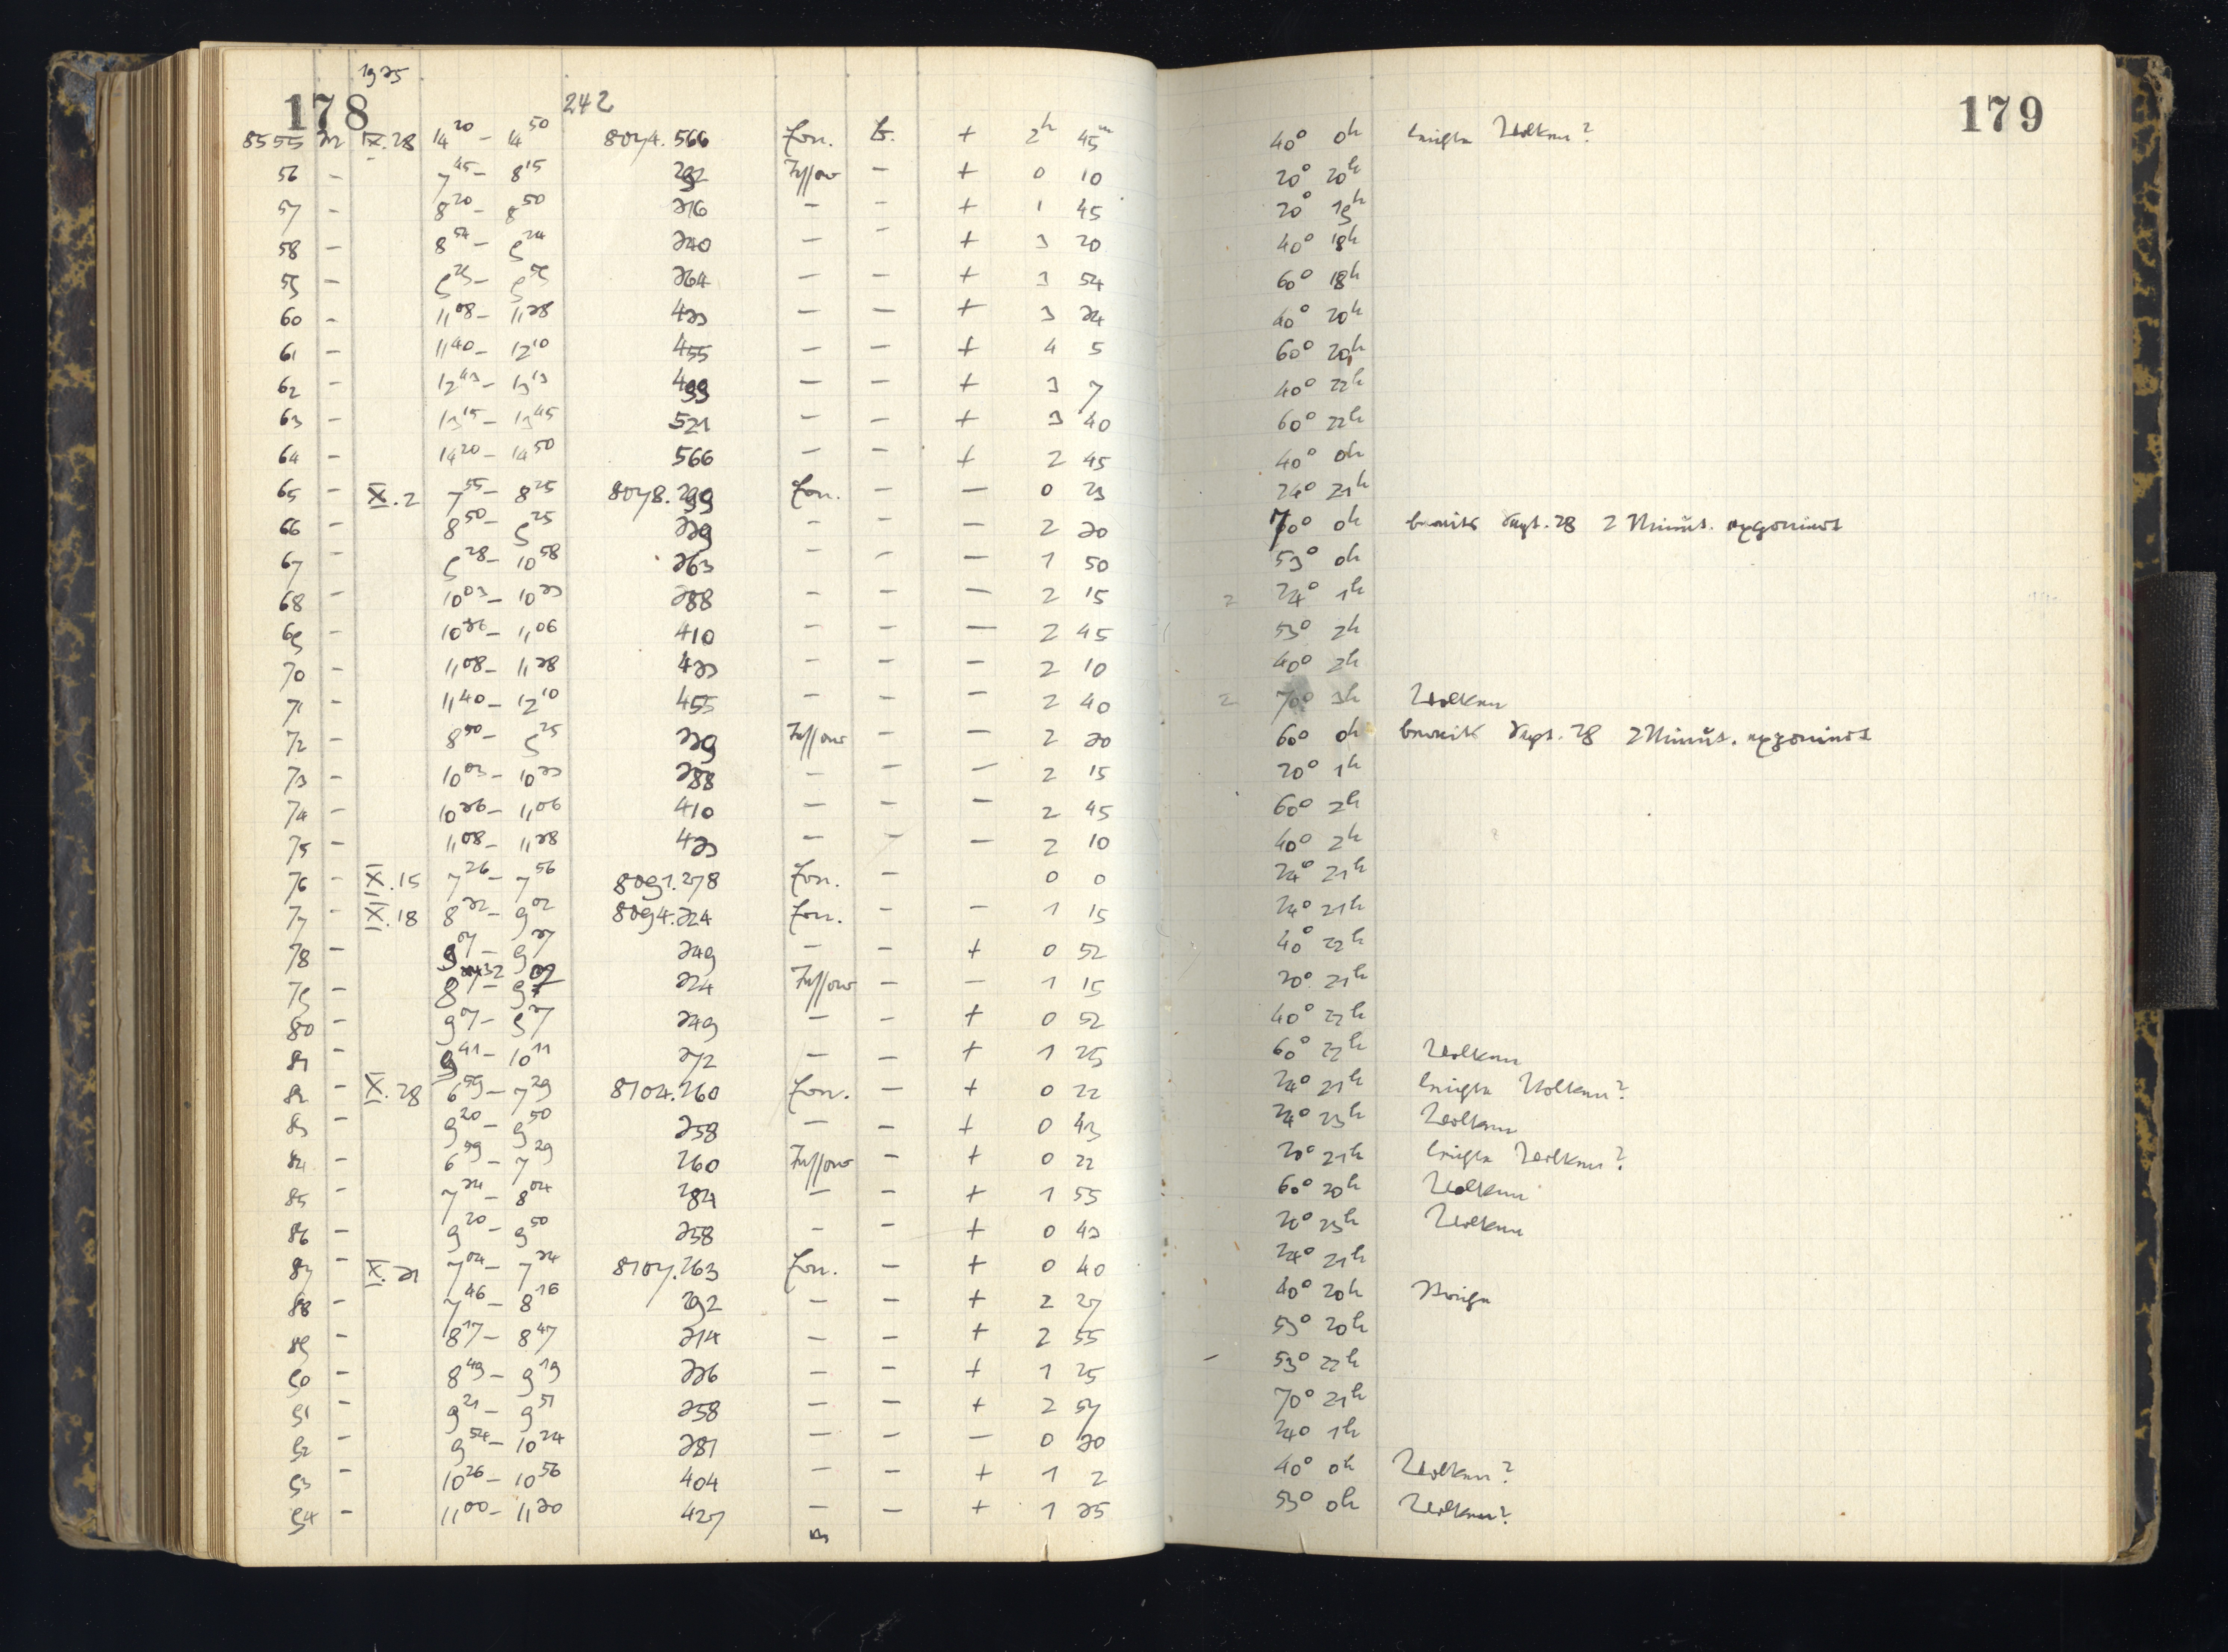 178
1935
242
8555 IX.28 14²⁰ – 14⁵⁰ 8074.566 Ern. + 2ʰ 45ᵐ 40° 0ʰ leichte Wolken?
56 – 7⁴⁵ – 8¹⁵ 292 Tessar – + 0 10 20° 20ʰ
57 – 8²⁰ – 8⁵⁰ 316 – – + 1 45 20° 19ʰ
58 – 8⁵⁴ – 9²⁴ 340 – – + 3 20 40° 18ʰ
59 – 9²⁹ – 9⁵⁹ 364 – – + 3 54 60° 18ʰ
60 – 11⁰⁸ – 11³⁸ 433 – – + 3 34 40° 20ʰ
61 – 11⁴⁰ – 12¹⁰ 455 – – + 4 5 60° 20ʰ
62 – 12⁴³ – 13¹³ 499 – – + 3 7 40° 22ʰ
63 – 13¹⁵ – 13⁴⁵ 521 – – + 3 40 60° 22ʰ
64 – 14²⁰ – 14⁵⁰ 566 – – + 2 45 40° 0ʰ
65 – X.2 7⁵⁵ – 8²⁵ 8078.299 Ern. – – 0 23 24° 21ʰ
66 – 8⁵⁰ – 9²⁵ 339 – – – 2 30 70° 0ʰ bereits Sept. 28 2 Minut. exponiert
67 – 9²⁸ – 10⁵⁸ 363 – – – 1 50 53° 0ʰ
68 – 10⁰³ – 10³³ 388 – – – 2 15 24° 1ʰ
69 – 10³⁶ – 11⁰⁶ 410 – – – 2 45 53° 2ʰ
70 – 11⁰⁸ – 11³⁸ 433 – – – 2 10 40° 2ʰ
71 – 11⁴⁰ – 12¹⁰ 455 – – – 2 40 70° 3ʰ Wolken
72 – 8⁵⁰ – 9²⁵ 339 Tessar – – 2 30 60° 0ʰ bereits Sept. 28 2 Minut. exponiert
73 – 10⁰³ – 10³³ 388 – – – 2 15 20° 1ʰ
74 – 10³⁶ – 11⁰⁶ 410 – – – 2 45 60° 2ʰ
75 – 11⁰⁸ – 11³⁸ 433 – – – 2 10 40° 2ʰ
76 – X.15 7²⁶ – 7⁵⁶ 8091.278 Ern. – 0 0 24° 21ʰ
77 – X.18 8³² – 9⁰² 8094.324 Ern. – – 1 15 24° 21ʰ
78 – 9⁰⁷ – 9³⁷ 349 – – + 0 52 40° 22ʰ
79 – 8³² – 9⁰² 324 Tessar – – 1 15 20° 21ʰ
80 – 9⁰⁷ – 9³⁷ 349 – – + 0 52 40° 22ʰ
81 – 9⁴¹ – 10¹¹ 372 – – + 1 25 60° 22ʰ Wolken
82 – X.28 6⁵⁹ – 7²⁹ 8104.260 Ern. – + 0 22 24° 21ʰ leichte Wolken?
83 – 9²⁰ – 9⁵⁰ 358 – – + 0 43 24° 23ʰ Wolken
84 – 6⁵⁹ – 7²⁹ 260 Tessar – + 0 22 20° 21ʰ leichte Wolken?
85 – 7³⁴ – 8⁰⁴ 284 – – + 1 55 60° 20ʰ Wolken
86 – 9²⁰ – 9⁵⁰ 358 – – + 0 43 20° 23ʰ Wolken
87 – X.31 7⁰⁴ – 7³⁴ 8107.263 Ern. – + 0 40 24° 21ʰ
88 – 7⁴⁶ – 8¹⁶ 292 – – + 2 27 40° 20ʰ
89 – 8¹⁷ – 8⁴⁷ 314 – – + 2 55 53° 20ʰ
90 – 8⁴⁹ – 9¹⁹ 336 – – + 1 25 53° 22ʰ
91 – 9²¹ – 9⁵¹ 358 – – + 2 57 70° 21ʰ
92 – 9⁵⁴ – 10²⁴ 381 – – – 0 30 24° 1ʰ
93 – 10²⁶ – 10⁵⁶ 404 – – + 1 2 40° 0ʰ Wolken?
94 – 11⁰⁰ – 11³⁰ 427 – – + 1 35 53° 0ʰ Wolken?
179